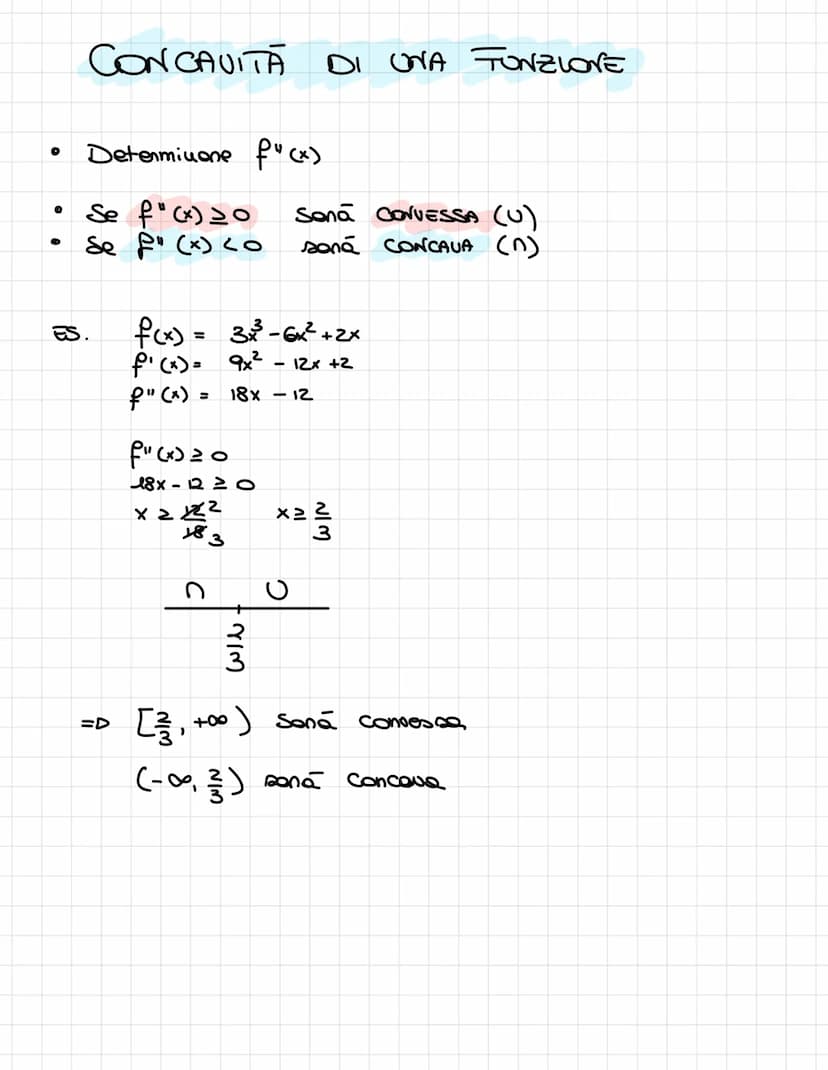 CONCAVITÀ DI UNA FUNZIONE
• Determinare f"(x)
• Se f"(x) ≥ 0 sarà CONVESSA (∪)
• Se f"(x) < 0 sarà CONCAVA (∩)
ES. f(x) = 3x³ - 6x² + 2x
f'(x) = 9x² - 12x + 2
f"(x) = 18x - 12
f"(x) ≥ 0
18x - 12 ≥ 0
x ≥ 12/18 2/3 x ≥ 2/3
∩ ∪
2/3
=> [2/3, +∞) sarà convessa
(-∞, 2/3) sarà concava